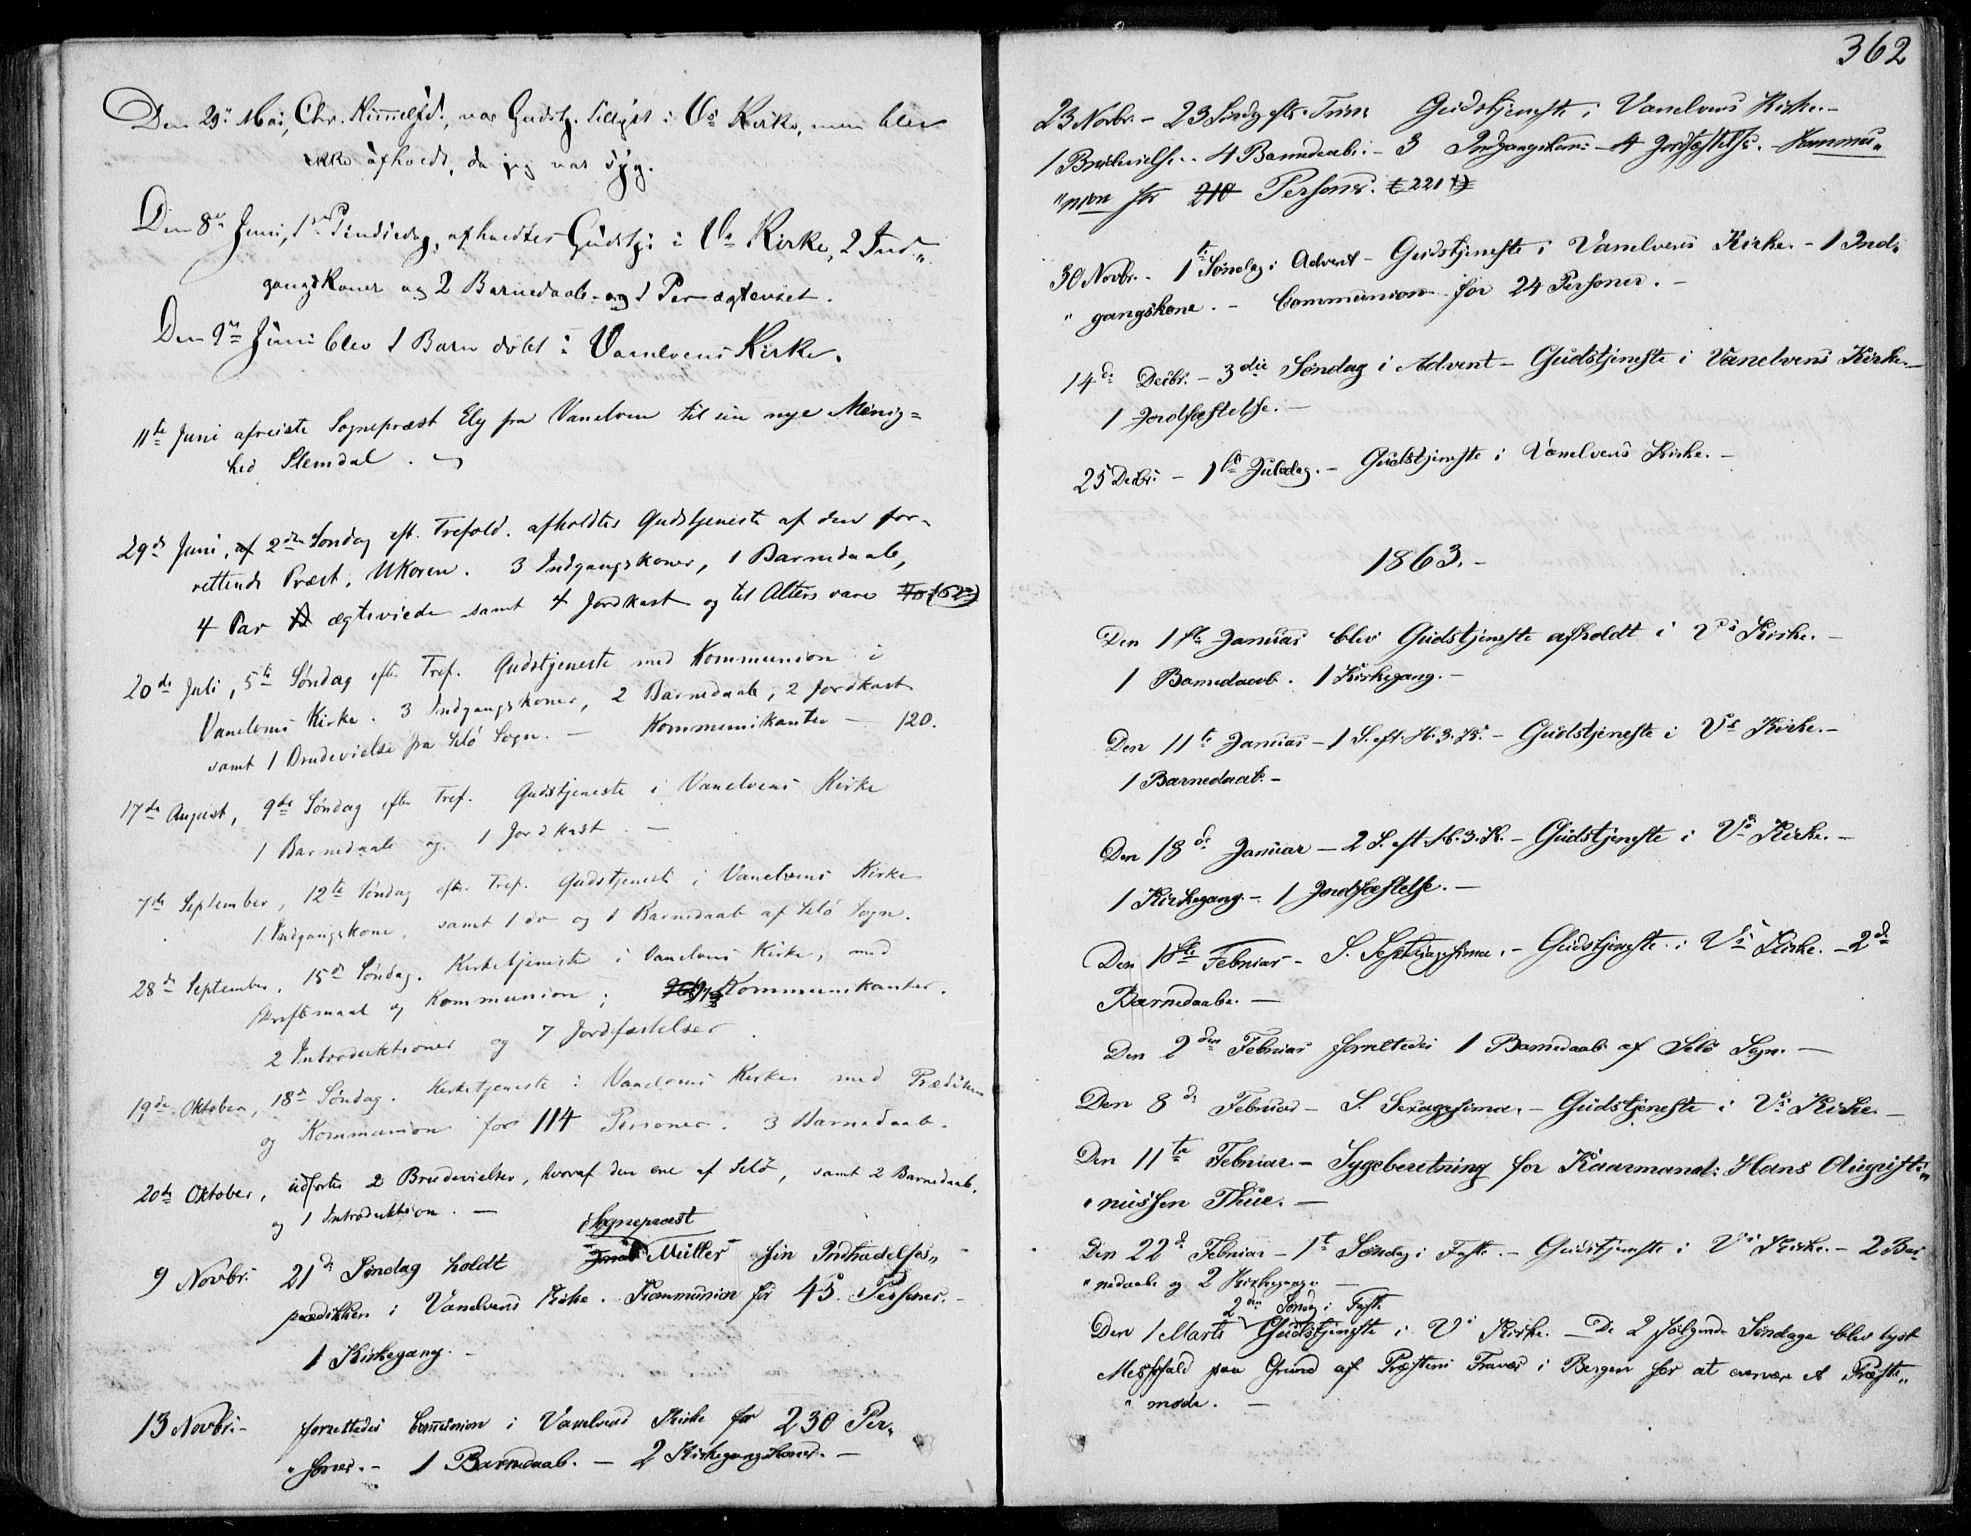 Den 29de Mai, Chr. Himmelfd., var Gudstj. tillyst i Vs Kirke, men blev
ikke afholdt, da jeg var syg.
Den 8de Juni, 1ste Pindsedag, afholdtes Gudstj. i Vs Kirke, 2 Ind-
gangskoner og 2 Barnedaab og 1 Par ægteviet.
Den 9de Juni blev 1 Barn døbt i Vanelvens Kirke.
11te Juni afreiste Sognepræst Ely fra Vanelven til sin nye Menig=
hed Slemdal.
29de Juni, af 2den Søndag eft. Trefold. afholdtes Gudstjeneste af den for-
rettende Præst, UKoren. 3 Indgangskoner, 1 Barnedaab,
4 Par ægteviede samt 4 Jordkast og til Alters vare
20de Juli, 5te Søndag eft. Tref. Gudstjeneste med Kommunion i
Vanelvens Kirke. 3 Indgangskoner, 2 Barnedaab, 2 Jordkast
samt 1 Brudevielse fra Selö Sogn. — Kommunikanter — 120.
17de August, 9de Søndag efter Tref. Gudstjeneste i Vanelvens Kirke
1 Barnedaab og 1 Jordkast. —
7de September, 12te Søndag efter Tref. Gudstjeneste i Vanelvens Kirke
1 Indgangskone, samt 1 do og 1 Barnedaab af Selö Sogn.
28de September, 15de Søndag. Kirketjeneste i Vanelvens Kirke, med
Skriftemaal og Kommunion; Kommunikanter.
2 Introduktioner og 7 Jordfæstelser.
19de Oktober, 18de Søndag. Kirketjeneste i Vanelvens Kirke med Prædiken
og Kommunion for 114 Personer. 3 Barnedaab.
20de Oktober, udførtes 2 Brudevielser, hvoraf den ene af Selö, samt 2 Barnedaab,
og 1 Introduktion. —
Sognepræst
9 Novbr. 21de Søndag holdt Müller sin Indtrædelses„
prædikken i Vanelvens Kirke. Kommunion for 45 Personer. -
1 Kirkegang. -
13 Novbr. - forrettedes Communion i Vanelvens Kirke for 230 Per„
„soner. - 1 Barnedaab. — 2 Kirkegangskoner. —
362
23 Novbr. - 23 Søndg eftr. Trin: Gudstjeneste i Vanelvens Kirke. -
1 Brudevielse. - 4 Barnedaab. - 3 Indgangskon: - 4 Jordfæstelse. - Kommu„
„nion for 210 Personer. (221)
30 Novbr. - 1te Søndag i Advent - Gudstjeneste i Vanelvens Kirke. - 1 Ind„
„gangskone. - Communion for 24 Personer. -
14de Decbr. - 3die Søndag i Advent - Gudstjeneste i Vanelvens Kirke. -
1 Jordfæstelse. -
25 Decbr: - 1ste Juledag. - Gudstjeneste i Vanelvens Kirke. -
1863. -
Den 1ste Januar blev Gudstjeneste afholdt i Vs Kirke. -
1 Barnedaab. 1 Kirkegang. -
Den 11te Januar - 1 S. eft. H. 3. K. - Gudstjeneste i Vs Kirke. -
1 Barnedaab. -
Den 18de Januar - 2 S. eft. H. 3. K. - Gudstjeneste i Vs Kirke. -
1 Kirkegang. - 1 Jordfæstelse. -
Den 1ste Februar - S. Septuagesima. - Gudstjeneste i Vs Kirke. - 2de
Barnedaabe. -
Den 2den Februar forrettedes 1 Barnedaab af Selö Sogn. —
Den 8de Februar - S. Sexagesima. - Gudstjeneste i Vs Kirke. -
Den 11te Februar. - Sygeberetning for Kaarmand: Hans Augusti„
„nussen Thue. —
Den 22de Februar - 1te Søndag i Faste. - Gudstjeneste i Vs Kirke. - 2 Bar„
„nedaabe og 2 Kirkegange —
2den Søndg i Faste
Den 1 Marts Gudstjeneste i Vs Kirke. - De 2 følgende Søndage blev lyst
Messefald paa Grund af Præstens Fravær i Bergen for at overvære et Præste„
„møde. —